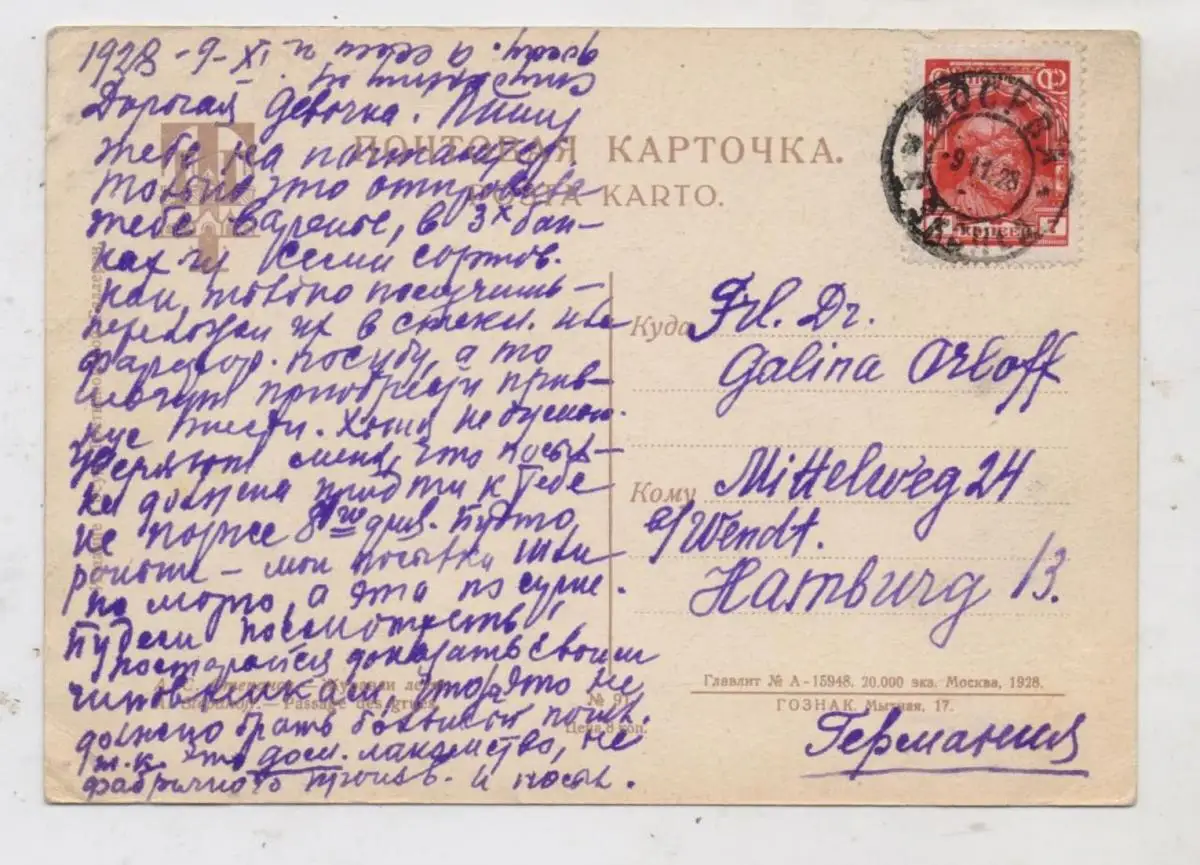 1928 - 9 - XI
Дорогая девочка. Пишу
тебе на почтамте.
Только что отправила
тебе варенье, в 3х бан-
ках и семи сортов.
Как только получишь -
переложи их в стекл. или
фарфор. посуду, а то
могут приобрести прив-
кус жести. Хотя не думаю.
Уверяют меня, что посыл-
ка должна прийти к тебе
не позже 8го дня.
- мои посылки шли
по морю, а эта по суше.
Будем посмотреть!
Постарайся доказать своим
чиновникам, что за это не
должно брать большой пошл.
т. к. это дом. лакомство, не
фабричного произв. и посыл.
ПОЧТОВАЯ КАРТОЧКА.
POŜTA KARTO.
МОСКВА
-9 11 28
7 КОПЕЕК 7
Куда Frl. Dr.
Galina Orloff
Кому Mittelweg 24
b/Wendt.
Hamburg 13.
А. С. Степанов.— Журавли летят
A. Stepanoff.— Passage des grues
№ 91
Цена 8 коп.
Главлит № А-15948. 20.000 экз. Москва, 1928.
ГОЗНАК. Мытная, 17.
Германия